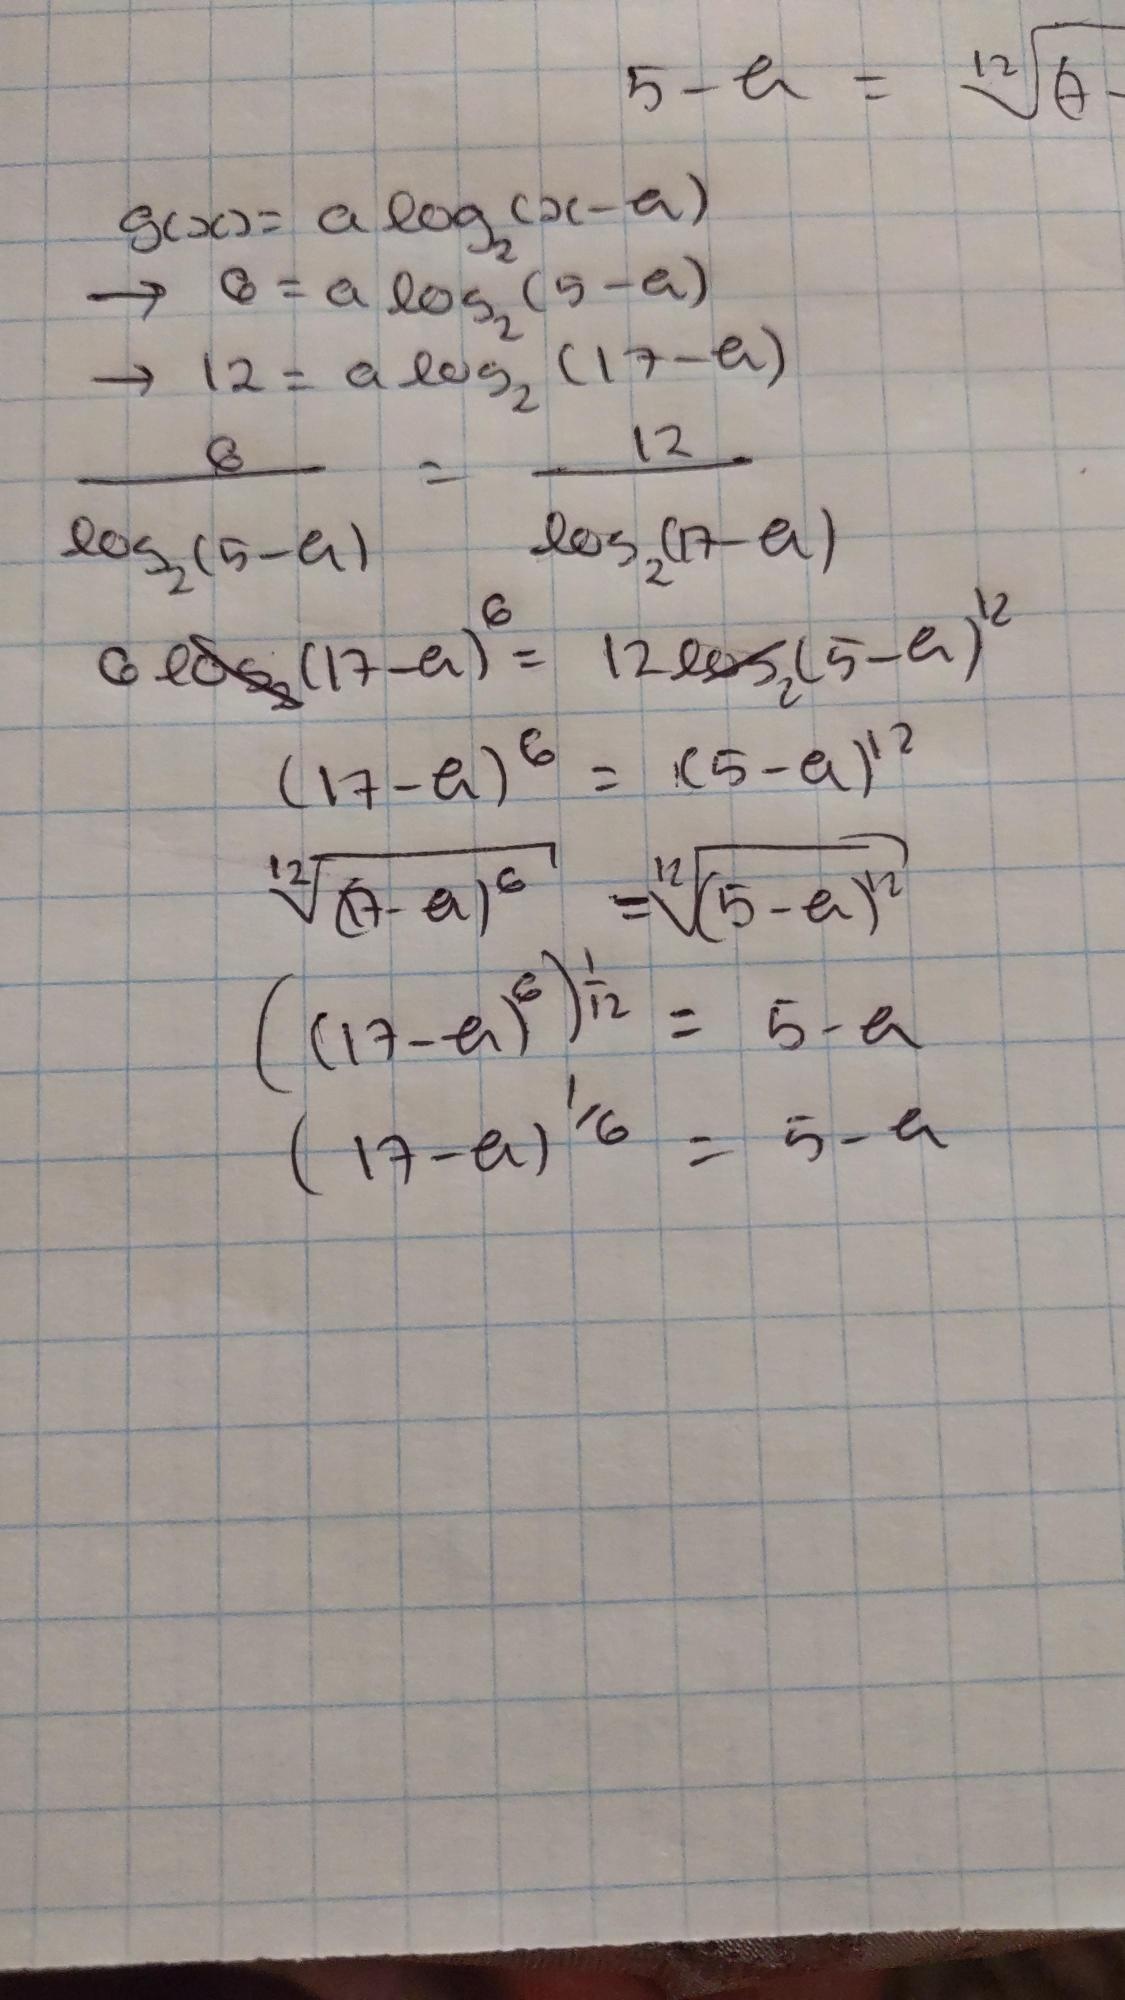 5 - a = ¹²√(7-
g(x) = a log₂(x-a)
→ 6 = a log₂(5-a)
→ 12 = a log₂(17-a)
6 = 12
log₂(5-a) log₂(17-a)
6 log₂(17-a)⁶ = 12 log₂(5-a)¹²
(17-a)⁶ = (5-a)¹²
¹²√(17-a)⁶ = ¹²√(5-a)¹²
((17-a)⁶)^1/12 = 5-a
(17-a)^1/6 = 5-a